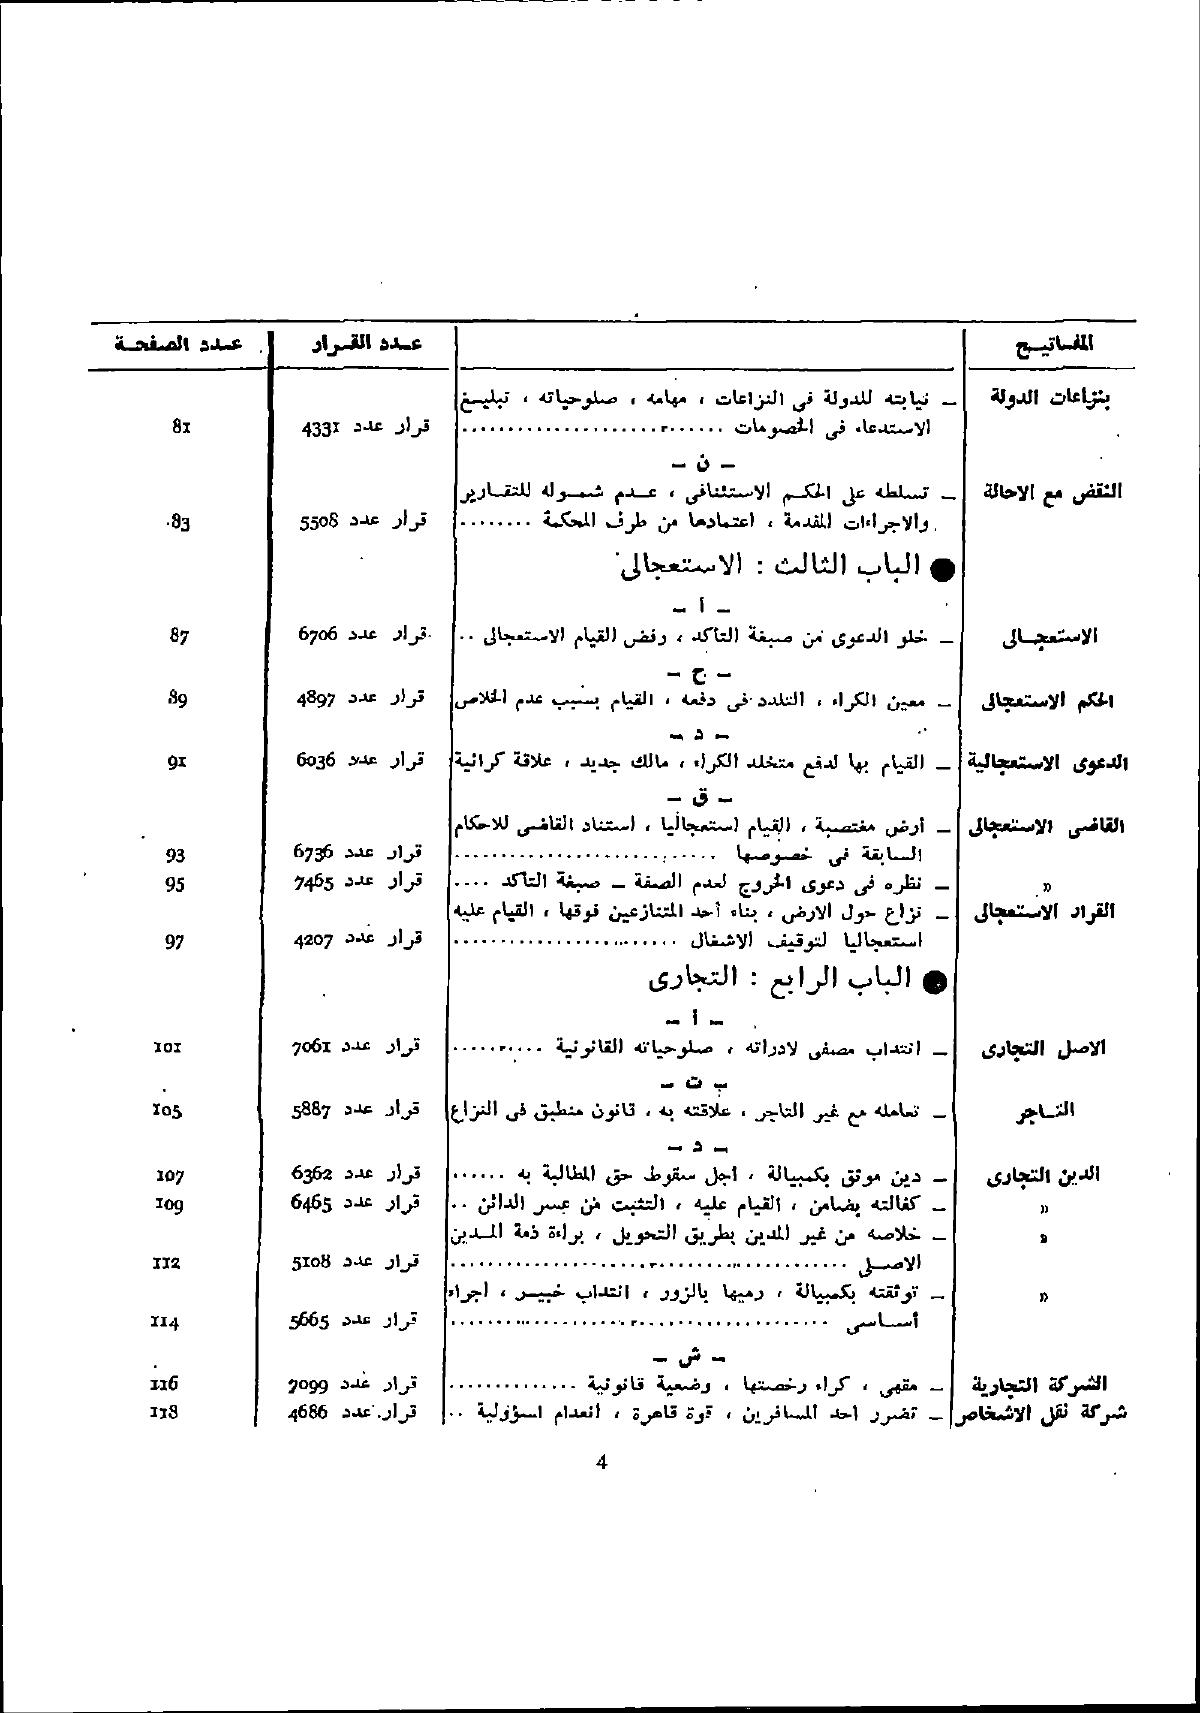 المفاتيح عدد القرار عدد الصفحة
بنزاعات الدولة — نيابته للدولة فى النزاعات ، مهامه ، صلوحياته ، تبليغ
الاستدعاء فى الخصومات ........................ قرار عدد 4331 81
— ن —
النقض مع الاحالة — تسلطه على الحكم الاستئنافى ، عدم شموله للتقارير
والاجراءات المقدمة ، اعتمادها من طرف المحكمة ........ قرار عدد 5508 83
● الباب الثالث : الاستعجالى
— أ —
الاستعجالى — خلو الدعوى من صبغة التأكد ، رفض القيام الاستعجالى .. قرار عدد 6706 87
— ح —
الحكم الاستعجالى — معين الكراء ، التلدد فى دفعه ، القيام بسبب عدم الخلاص قرار عدد 4897 89
— د —
الدعوى الاستعجالية — القيام بها لدفع متخلد الكراء ، مالك جديد ، علاقة كرائية قرار عدد 6036 91
— ق —
القاضى الاستعجالى — أرض مغتصبة ، القيام استعجاليا ، استناد القاضى للاحكام
السابقة فى خصوصها ........................ قرار عدد 6736 93
« — نظره فى دعوى الخروج لعدم الصفة — صبغة التأكد .... قرار عدد 7465 95
القرار الاستعجالى — نزاع حول الارض ، بناء أحد المتنازعين فوقها ، القيام عليه
استعجاليا لتوقيف الاشغال ........................ قرار عدد 4207 97
● الباب الرابع : التجارى
— أ —
الاصل التجارى — انتداب مصفى لادراته ، صلوحياته القانونية .......... قرار عدد 7061 101
— ت —
التاجر — تعامله مع غير التاجر ، علاقته به ، قانون منطبق فى النزاع قرار عدد 5887 105
— د —
الدين التجارى — دين موثق بكمبيالة ، اجل سقوط حق المطالبة به ...... قرار عدد 6362 107
« — كفالته بضامن ، القيام عليه ، التثبت من عسر الدائن .. قرار عدد 6465 109
« — خلاصه من غير المدين بطريق التحويل ، براءة ذمة المدين
الاصلى ........................................ قرار عدد 5108 112
« — توثقته بكمبيالة ، رميها بالزور ، انتداب خبير ، اجراء
أساسى ........................................ قرار عدد 5665 114
— ش —
الشركة التجارية — مقهى ، كراء رخصتها ، وضعية قانونية .............. قرار عدد 7099 116
شركة نقل الاشخاص — تضرر احد المسافرين ، قوة قاهرة ، انعدام اسؤولية .. قرار عدد 4686 118
4